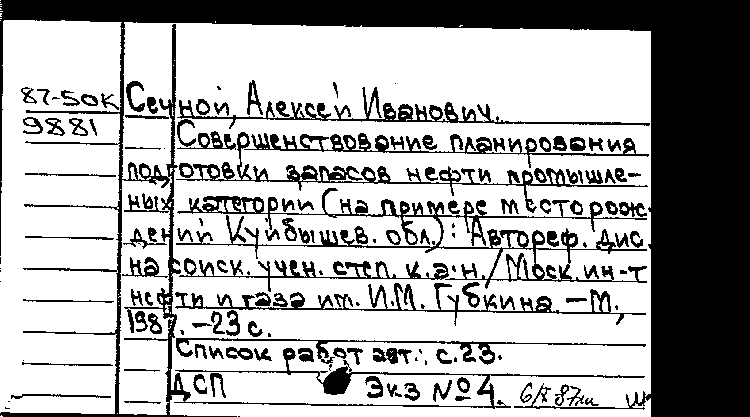 87-50К
9881
Сечной, Алексей Иванович.
Совершенствование планирования
подготовки запасов нефти промышле-
ных категории (на примере месторож-
дений Куйбышев. обл.): Автореф. дис.
на соиск. учен. степ. к.э.н./Моск. ин-т
нефти и газа им. И.М. Губкина. —М.,
1987. —23 с.
Список работ авт.: с.23.
ДСП Экз №4.